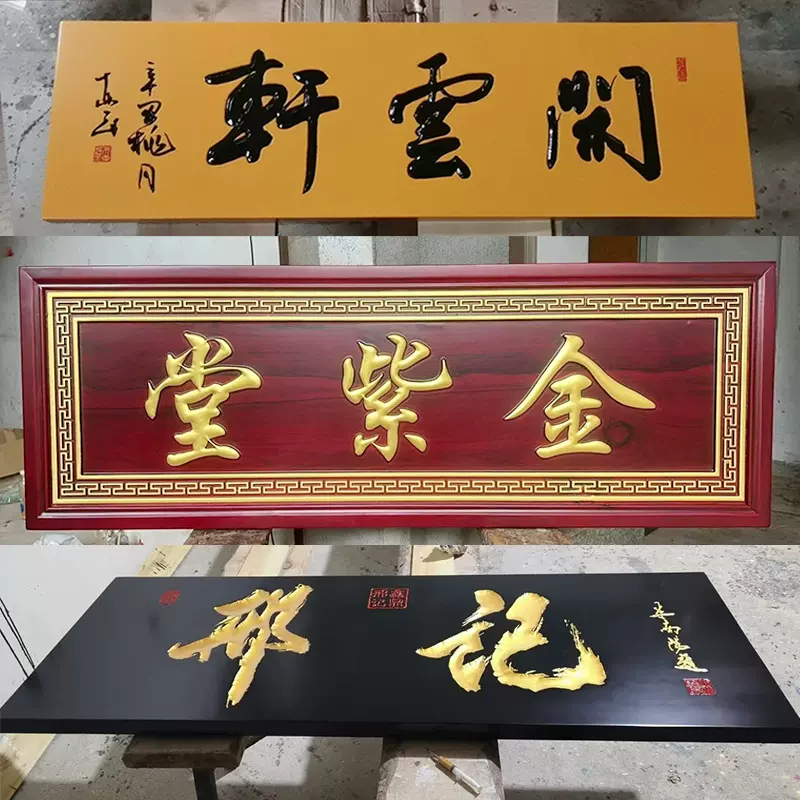 閑雲軒
辛丑桃月
金紫堂
邢記